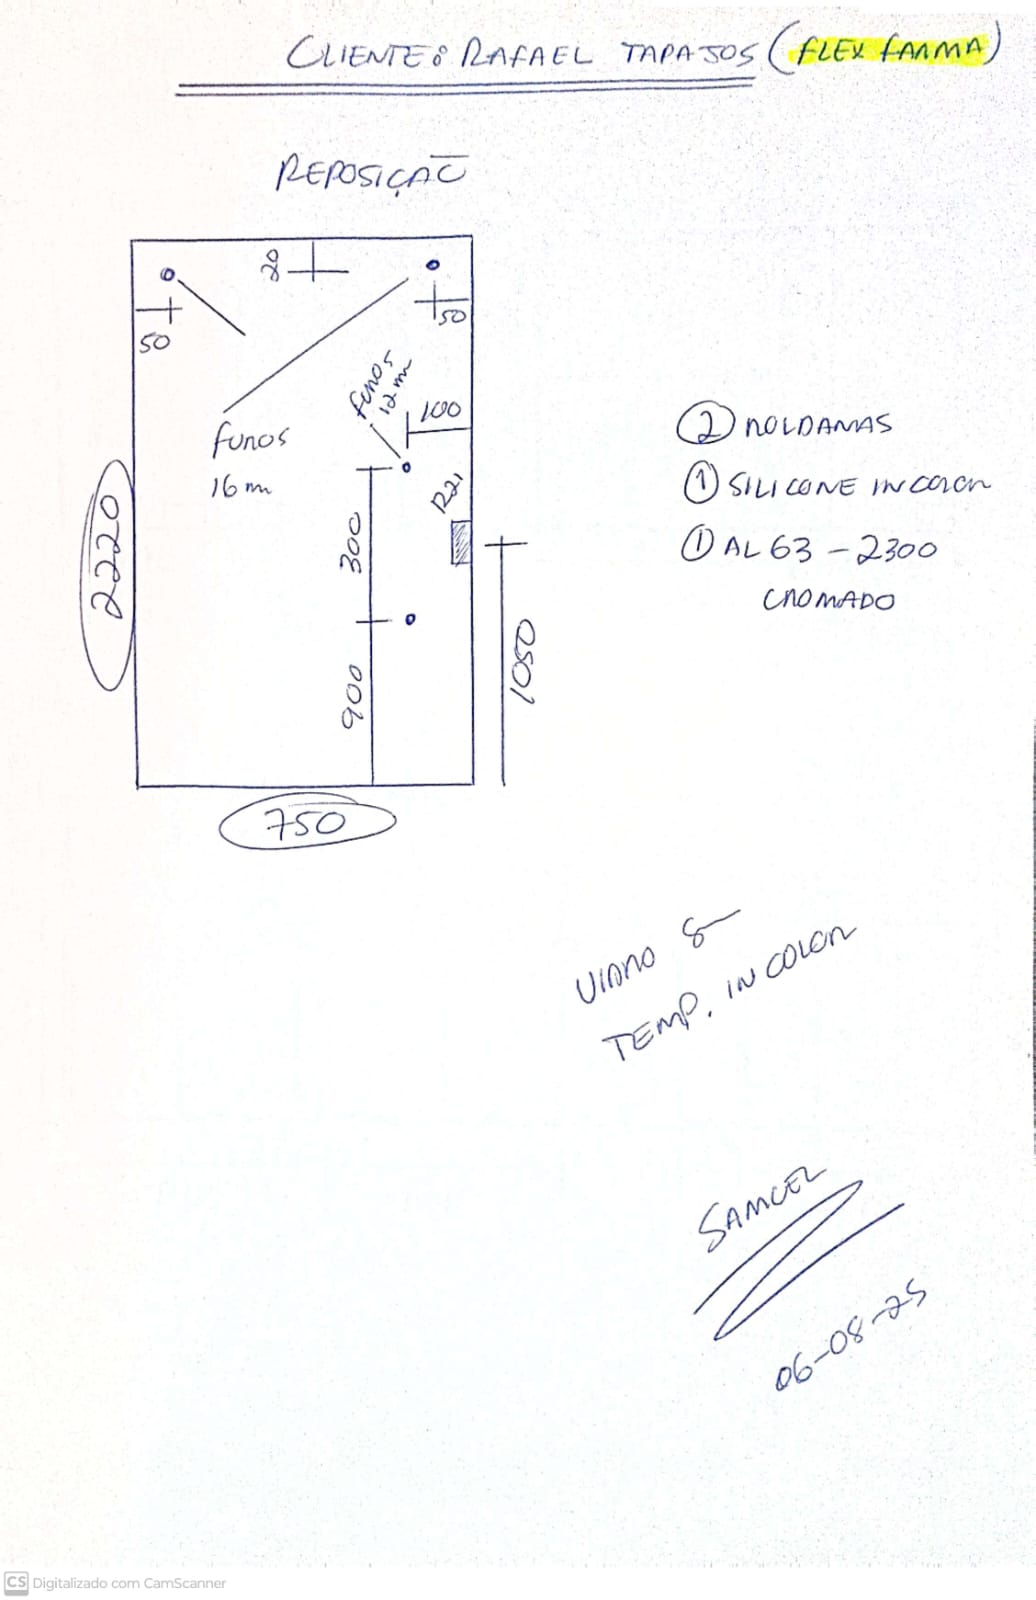 CLIENTE: RAFAEL TAPAJOS (FLEX FARMA)
REPOSIÇÃO
20
50
50
FUROS
12 m
100
FUROS
16 m
1221
2220
300
900
1050
750
2 ROLDANAS
1 SILICONE INCOLOR
1 AL 63 - 2300
CROMADO
VIDRO 8
TEMP. INCOLOR
SAMUEL
06-08-25
CS Digitalizado com CamScanner